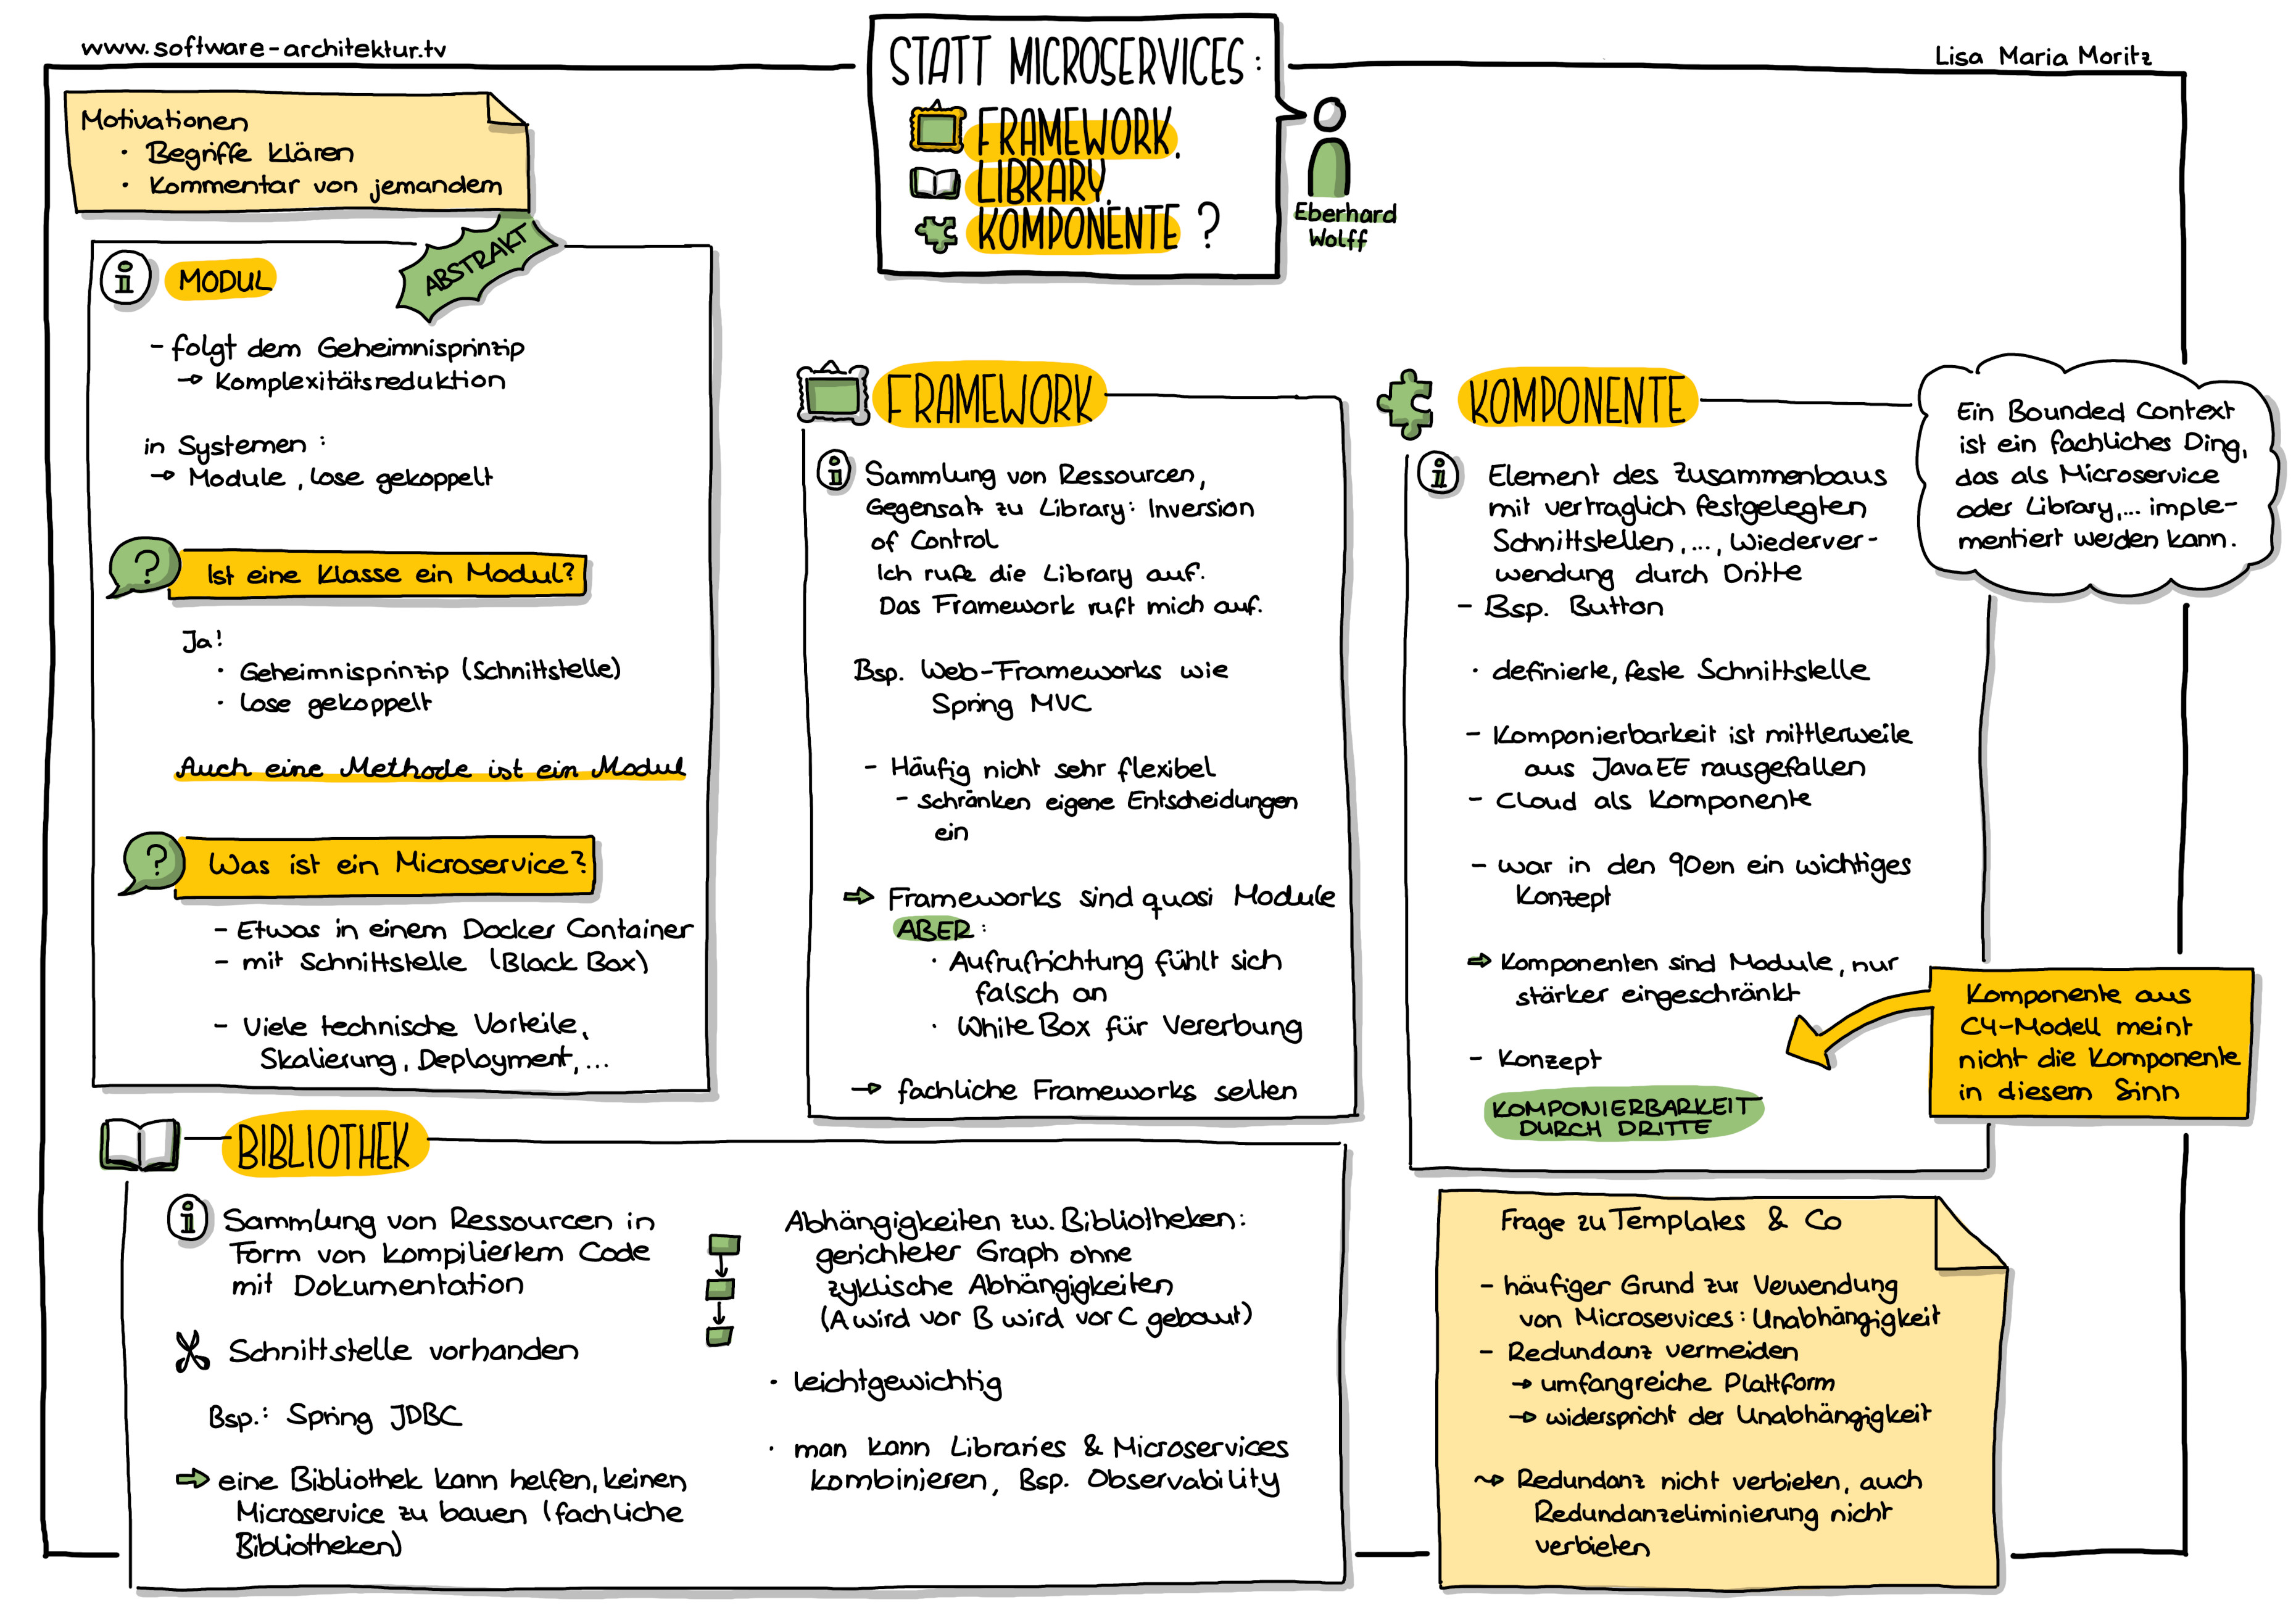 www.software-architektur.tv
Lisa Maria Moritz
STATT MICROSERVICES:
FRAMEWORK,
LIBRARY,
KOMPONENTE ?
Eberhard
Wolff
Motivationen
· Begriffe klären
· Kommentar von jemandem
MODUL
ABSTRAKT
- folgt dem Geheimnisprinzip
→ Komplexitätsreduktion
in Systemen :
→ Module, lose gekoppelt
? Ist eine Klasse ein Modul?
Ja!
· Geheimnisprinzip (Schnittstelle)
· lose gekoppelt
Auch eine Methode ist ein Modul
? Was ist ein Microservice?
- Etwas in einem Docker Container
- mit Schnittstelle (Black Box)
- Viele technische Vorteile,
Skalierung, Deployment, ...
FRAMEWORK
i Sammlung von Ressourcen,
Gegensatz zu Library: Inversion
of Control
Ich rufe die Library auf.
Das Framework ruft mich auf.
Bsp. Web-Frameworks wie
Spring MVC
- Häufig nicht sehr flexibel
- schränken eigene Entscheidungen
ein
⇒ Frameworks sind quasi Module
ABER :
· Aufrufrichtung fühlt sich
falsch an
· White Box für Vererbung
→ fachliche Frameworks selten
KOMPONENTE
i Element des Zusammenbaus
mit vertraglich festgelegten
Schnittstellen, ..., Wiederver-
wendung durch Dritte
- Bsp. Button
· definierte, feste Schnittstelle
- Komponierbarkeit ist mittlerweile
aus JavaEE rausgefallen
- Cloud als Komponente
- war in den 90ern ein wichtiges
Konzept
⇒ Komponenten sind Module, nur
stärker eingeschränkt
- Konzept
KOMPONIERBARKEIT
DURCH DRITTE
Ein Bounded Context
ist ein fachliches Ding,
das als Microservice
oder Library,... imple-
mentiert werden kann.
Komponente aus
C4-Modell meint
nicht die Komponente
in diesem Sinn
BIBLIOTHEK
i Sammlung von Ressourcen in
Form von kompiliertem Code
mit Dokumentation
Schnittstelle vorhanden
Bsp.: Spring JDBC
⇒ eine Bibliothek kann helfen, keinen
Microservice zu bauen (fachliche
Bibliotheken)
Abhängigkeiten zw. Bibliotheken:
gerichteter Graph ohne
zyklische Abhängigkeiten
(A wird vor B wird vor C gebaut)
· leichtgewichtig
· man kann Libraries & Microservices
kombinieren, Bsp. Observability
Frage zu Templates & Co
- häufiger Grund zur Verwendung
von Microservices: Unabhängigkeit
- Redundanz vermeiden
→ umfangreiche Plattform
→ widerspricht der Unabhängigkeit
⇝ Redundanz nicht verbieten, auch
Redundanzeliminierung nicht
verbieten